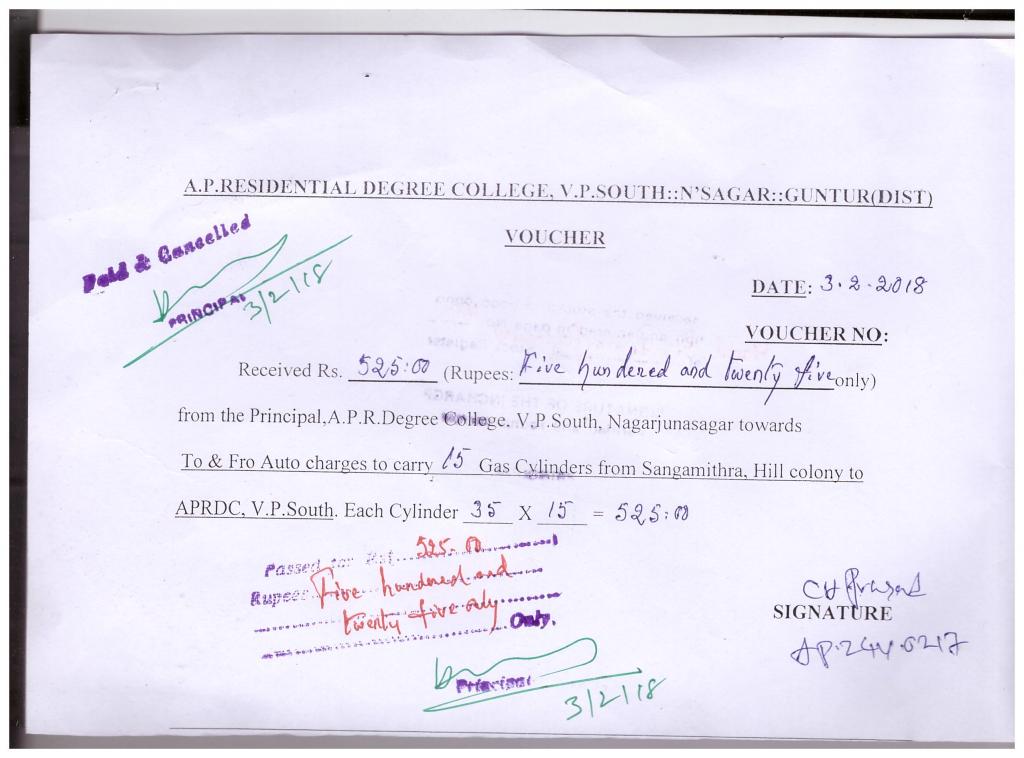 A.P.RESIDENTIAL DEGREE COLLEGE, V.P.SOUTH::N'SAGAR::GUNTUR(DIST)
VOUCHER
Paid & Cancelled
PRINCIPAL
3/2/18
DATE: 3.2.2018
VOUCHER NO:
Received Rs. 525:00 (Rupees: Five hundered and twenty five only)
from the Principal,A.P.R.Degree College, V.P.South, Nagarjunasagar towards
To & Fro Auto charges to carry 15 Gas Cylinders from Sangamithra, Hill colony to
APRDC, V.P.South. Each Cylinder 35 X 15 = 525:00
Passed for Rs. 525-00
Rupees Five hundred and
twenty five only
Only.
Principal
3/2/18
CH Prasad
SIGNATURE